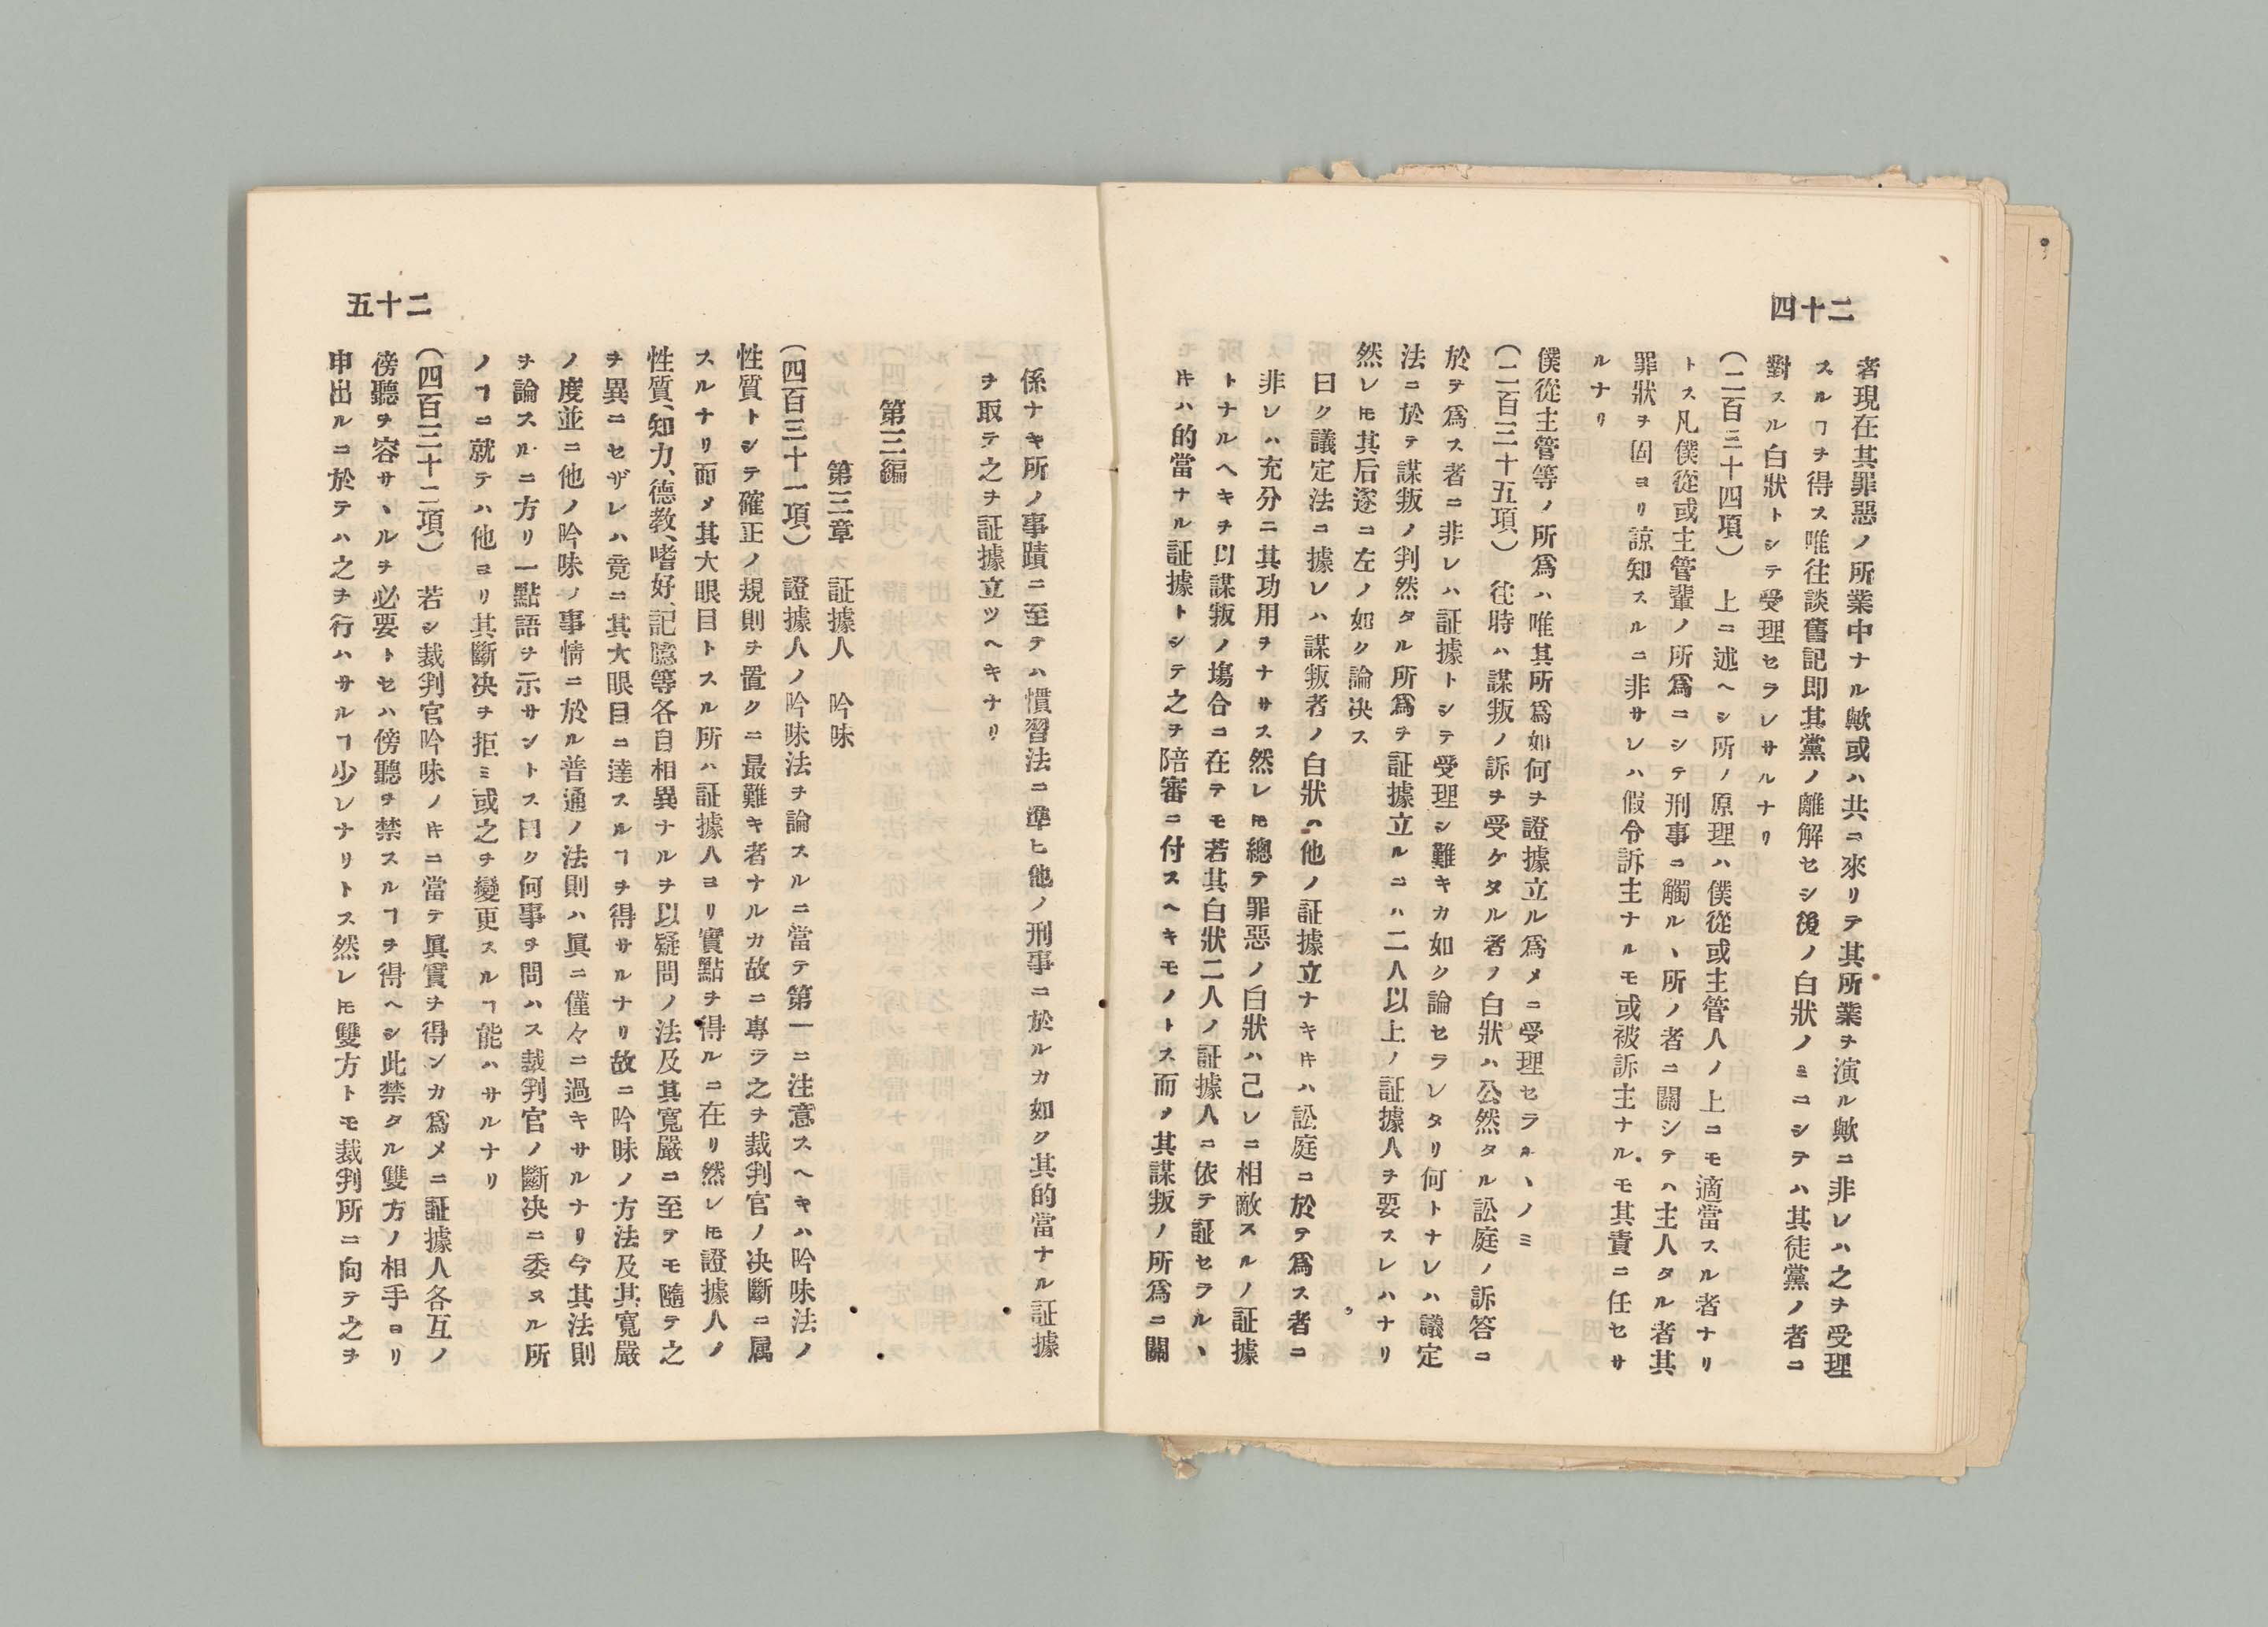 二十四
者現在其罪惡ノ所業中ナル歟或ハ共ニ來リテ其所業ヲ演ル歟ニ非レハ之ヲ受理
スルヿヲ得ス唯往談舊記即其黨ノ離解セシ後ノ白狀ノミニシテハ其徒黨ノ者ニ
對スル白狀トシテ受理セラレサルナリ
(二百三十四項) 上ニ述ヘシ所ノ原理ハ僕從或主管人ノ上ニモ適當スル者ナリ
トス凡僕從或主管輩ノ所爲ニシテ刑事ニ觸ルヽ所ノ者ニ關シテハ主人タル者其
罪狀ヲ固ヨリ諒知スルニ非サレハ假令訴主ナルモ或被訴主ナルモ其責ニ任セサ
ルナリ
僕從主管等ノ所爲ハ唯其所爲如何ヲ證據立ル爲メニ受理セラルヽノミ
(二百三十五項) 往時ハ謀叛ノ訴ヲ受ケタル者ノ白狀ハ公然タル訟庭ノ訴答ニ
於ヲ爲ス者ニ非レハ証據トシテ受理シ難キカ如ク論セラレタリ何トナレハ議定
法ニ於テ謀叛ノ判然タル所爲ヲ証據立ルニハ二人以上ノ証據人ヲ要スレハナリ
然レ𪜈其后遂ニ左ノ如ク論决ス
曰ク議定法ニ據レハ謀叛者ノ白狀ハ他ノ証據立ナキ𪜈ハ訟庭ニ於テ爲ス者ニ
非レハ充分ニ其功用ヲナサス然レ𪜈總テ罪惡ノ白狀ハ己レニ相敵スルノ証據
トナルヘキヲ以謀叛ノ塲合ニ在テモ若其白狀二人ノ証據人ニ依テ証セラルヽ
𪜈ハ的當ナル証據トシテ之ヲ陪審ニ付スヘキモノトス而〆其謀叛ノ所爲ニ關
二十五
係ナキ所ノ事蹟ニ至テハ慣習法ニ準ヒ他ノ刑事ニ於ルカ如ク其的當ナル証據
ヲ取テ之ヲ証據立ツヘキナリ
第三編
第三章 証據人 吟味
(四百三十一項) 證據人ノ吟味法ヲ論スルニ當テ第一ニ注意スヘキハ吟味法ノ
性質トシテ確正ノ規則ヲ置クニ最難キ者ナルカ故ニ專ラ之ヲ裁判官ノ决斷ニ属
スルナリ而〆其大眼目トスル所ハ証據人ヨリ實點ヲ得ルニ在リ然レ𪜈證據人ノ
性質、知力、德教、嗜好、記臆等各自相異ナルヲ以疑問ノ法及其寬嚴ニ至テモ隨テ之
ヲ異ニセザレハ竟ニ其大眼目ニ達スルヿヲ得サルナリ故ニ吟味ノ方法及其寬嚴
ノ度並ニ他ノ吟味ノ事情ニ於ル普通ノ法則ハ眞ニ僅々ニ過キサルナリ今其法則
ヲ論スルニ方リ一點語ヲ示サントス曰ク何事ヲ問ハス裁判官ノ斷决ニ委スル所
ノヿニ就テハ他ヨリ其斷决ヲ拒ミ或之ヲ變更スルヿ能ハサルナリ
(四百三十二項) 若シ裁判官吟味ノ𪜈ニ當テ眞實ヲ得ンカ爲メニ証據人各互ノ
傍聽ヲ容サヽルヲ必要トセハ傍聽ヲ禁スルヿヲ得ヘシ此禁タル雙方ノ相手ヨリ
申出ルニ於テハ之ヲ行ハサルヿ少レナリトス然レ𪜈雙方トモ裁判所ニ向テ之ヲ